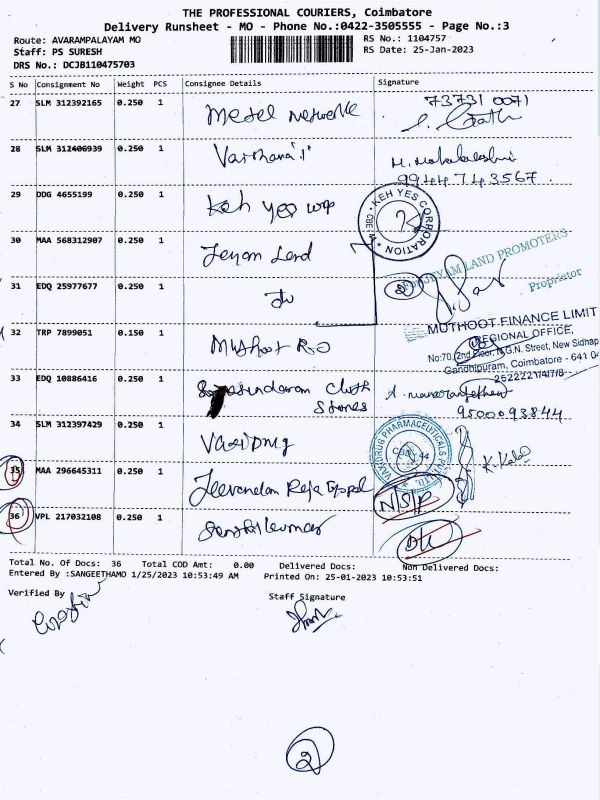 THE PROFESSIONAL COURIERS, Coimbatore
Delivery Runsheet - MO - Phone No.:0422-3505555 - Page No.:3
Route: AVARAMPALAYAM MO
RS No.: 1104757
Staff: PS SURESH
RS Date: 25-Jan-2023
DRS No.: DCJB110475703
S No Consignment No Weight PCS Consignee Details Signature
27 SLM 312392165 0.250 1 Metel Network 73731 0071
28 SLM 312406939 0.250 1 Varthana
99447 43567
29 DDG 4655199 0.250 1 Keh yes
KEH YES CORPORATION CBE
30 MAA 568312907 0.250 1 Land
LAND PROMOTERS
Proprietor
31 EDQ 25977677 0.250 1
MUTHOOT FINANCE LIMIT
REGIONAL OFFICE,
32 TRP 7899051 0.150 1 Muthoot RO
No:70, 2nd Floor, N.G.N. Street, New Sidhap
Gandhipuram, Coimbatore - 641 04
33 EDQ 10886416 0.250 1 Cloth
Stores
9500093844
34 SLM 312397429 0.250 1
PHARMACEUTICALS
35 MAA 296645311 0.250 1 Jeevanelam Raja Gopal N/S/P
36 VPL 217032108 0.250 1 Senthilkumar D/L
Total No. Of Docs: 36 Total COD Amt: 0.00 Delivered Docs: Non Delivered Docs:
Entered By :SANGEETHAMO 1/25/2023 10:53:49 AM Printed On: 25-01-2023 10:53:51
Verified By Staff Signature
2